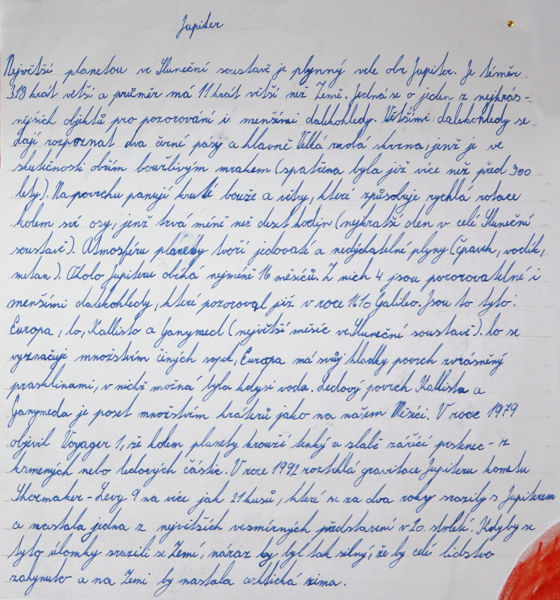 Jupiter
Největší planetou ve Sluneční soustavě je plynný vele obr Jupiter. Je téměř
318 krát větší a průměr má 11 krát větší než Země. Jedná se o jeden z nejkrás-
nějších objektů pro pozorování i menšími dalekohledy. Většími dalekohledy se
dají rozpoznat dva čirné pasy a hlavně Velká rudá skvrna, jenž je ve
skutečnosti obřím bouřlivým mrakem (spatřena byla již více než před 300
lety). Na povrchu panují kruté bouře a větry, které způsobuje rychlá rotace
kolem své osy, jenž trvá méně než deset hodin (nejkratší den v celé Sluneční
soustavě). Atmosféru planety tvoří jedovaté a nedýchatelné plyny (čpavek, vodík,
metan.). Okolo Jupiteru obíhá nejméně 16 měsíců. Z nich 4 jsou pozorovatelné i
menšími dalekohledy, které pozoroval již v roce 1610 Galileo. Jsou to tyto:
Europa, Io, Kallisto a Ganymed (největší měsíc ve Sluneční soustavě). Io se
vyznačuje množstvím činých sopek, Europa má svůj hladký povrch zvrásněný
prasklinami, v nichž možná byla kdysi voda. Ledový povrch Kallista a
Ganymeda je poset množstvím kráterů jako na našem Měsíci. V roce 1979
objevil Voyager 1, že kolem planety krouží tenký a slabě zářící prstenec - z
kamených nebo ledových částic. V roce 1992 roztrhla gravitace Jupiteru kometu
Shoemaker-Levy 9 na více jak 21 kusů, které se za dva roky srazily s Jupiterem
a nastala jedna z největších vesmírných představení v 20. století. Kdyby se
tyto úlomky srazili se Zemí, náraz by byl tak silný, že by celé lidstvo
zahynulo a na Zemi by nastala arktická zima.